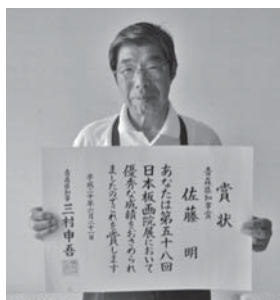 賞状
青森県知事賞
佐藤 明
あなたは第五十八回
日本板画院展において
優秀な成績をおさめられ
ましたのでこれを賞します
平成二十年六月二十一日
青森県知事 三村申吾